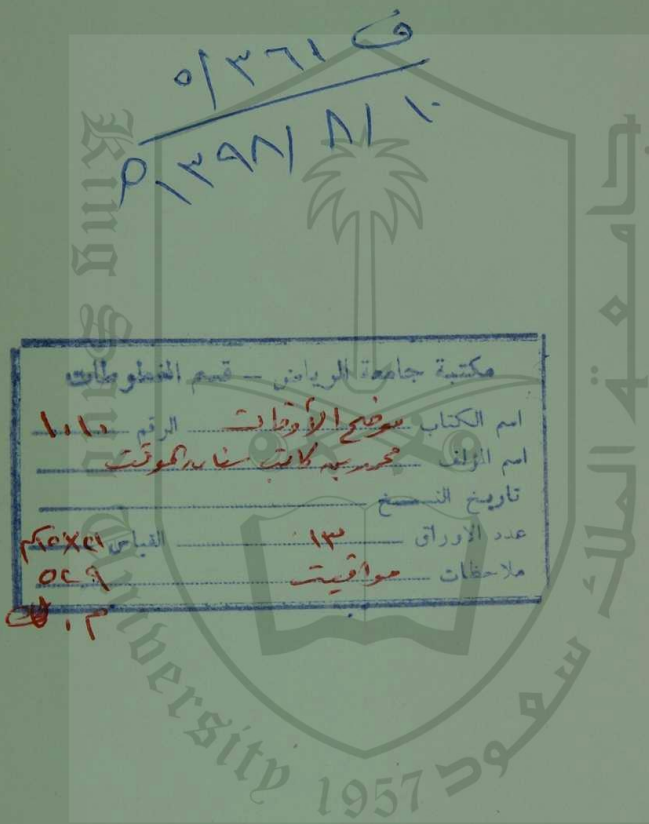 ف ٣٦١/٥
١٣٩٨/٨/١٠ ه
مكتبة جامعة الرياض – قسم المخطوطات
اسم الكتاب موضح الأوقات الرقم ١٠١٠
اسم المؤلف محمد بن كاتب سنان الموقت
تاريخ النسخ
عدد الأوراق ١٣ القياس ٢١×١٥ سم
ملاحظات مواقيت ٥٢٩
م.
جامعة الملك سعود
King Saud University 1957